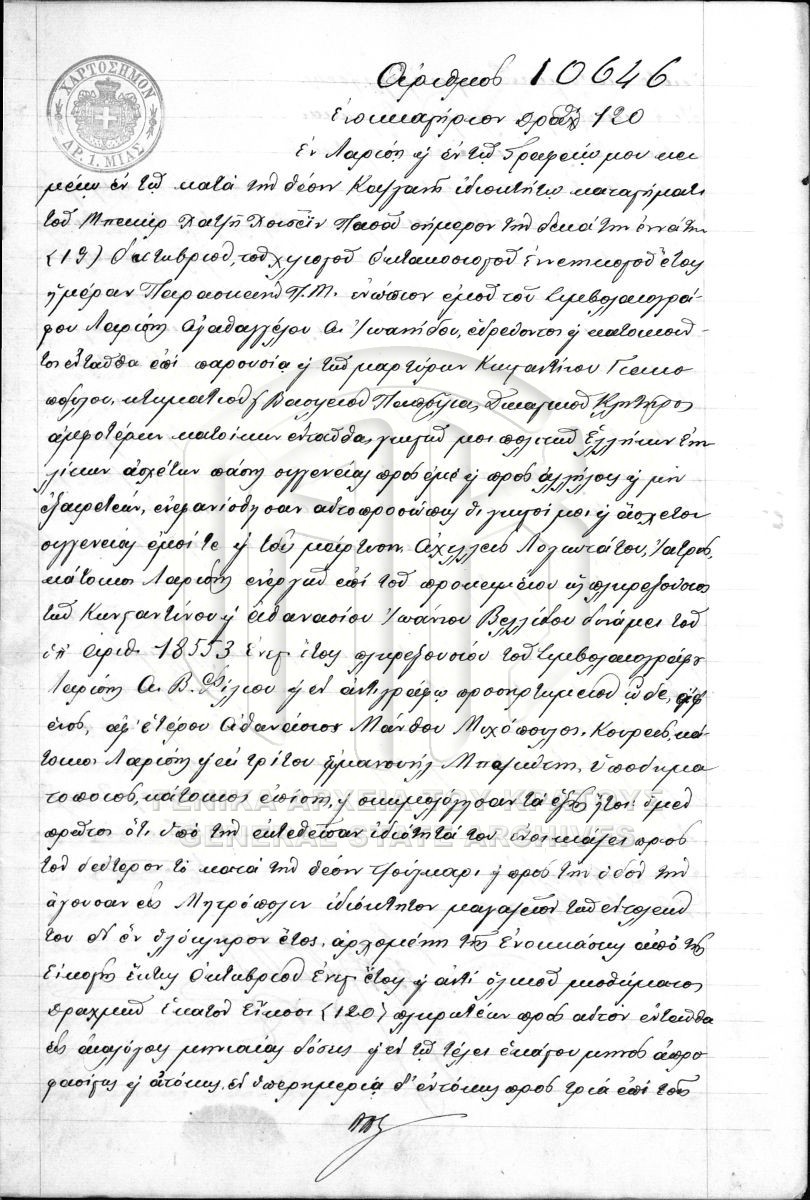 ΧΑΡΤΟΣΗΜΟΝ
ΔΡ. 1. ΜΙΑΣ
Αριθμος 10646
Ενοικιαστήριον δραχ 120
Εν Λαρίση και εν τω Γραφείω μου κει
μένω εν τω κατά την θέσιν ιδιοκτήτω καταστήματι
του Μπεκήρ Χατζή Χουσεΐν Πασσά σήμερον την δεκάτην εννάτην
(19) Οκτωβρίου, του χιλιοστού οκτακοσιοστού ενενηκοστού έτους
ημέραν Παρασκευήν Π.Μ. ενώπιον εμού του συμβολαιογρά
φου Λαρίσης Αγαθαγγέλου Α. Ιωαννίδου, εδρεύοντος και κατοικούν
τος ενταύθα επί παρουσία και των μαρτύρων Κωνσταντίνου
κτηματίου και Βασιλείου δικαστικού Κλητήρος
αμφοτέρων κατοίκων ενταύθα, γνωστών μοι πολιτών Ελλήνων ενη
λίκων ασχέτων πάσης συγγενείας προς εμέ και προς αλλήλους και μη
εξαιρετέων, ενεφανίσθησαν αυτοπροσώπως οι γνωστοί μοι και άσχετοι
συγγενείας εμοί τε και τοις μάρτυσιν Αχιλλεύς Λογιωτάτου, Ιατρός,
κάτοικος Λαρίσης ενεργών επί του προκειμένου ως πληρεξούσιος
των Κωνσταντίνου και Αθανασίου Ιωάννου Βελλίδου δυνάμει του
υπ' αριθ. 18553 ενεστ. έτους πληρεξουσίου του συμβολαιογράφου
Λαρίσης Α. Β. Φίλιου και εν αντιγράφω προσηρτημένου ώδε, αφ'
ενός, αφ' ετέρου Αθανάσιος Μάνθου Μιχόπουλος, Κουρεύς, κά
τοικος Λαρίσης και εκ τρίτου Εμμανουήλ υποδημα
τοποιός, κάτοικος επίσης, και συνωμολόγησαν τα εξής ήτοι: ο μεν
πρώτος ότι υπό την εκτεθείσαν ιδιότητά του ενοικιάζει προς
τον δεύτερον το κατά την θέσιν και προς την οδόν την
άγουσαν εις Μητρόπολιν ιδιόκτητον μαγαζείον των εντολέων
του δι' εν ολόκληρον έτος, αρχομένης της Ενοικιάσεως από της
εικοστής έκτης Οκτωβρίου ενεστ. έτους και αντί ολικού μισθώματος
δραχμών Εκατόν Είκοσι (120) πληρωτέων προς αυτόν ενταύθα
εις αναλόγους μηνιαίας δόσεις και εν τω τέλει εκάστου μηνός απρο
φασίστως και ατόκως, εν υπερημερία δ' εντόκως προς τρία επί τοις
ΓΕΝΙΚΑ ΑΡΧΕΙΑ ΤΟΥ ΚΡΑΤΟΥΣ
GENERAL STATE ARCHIVES